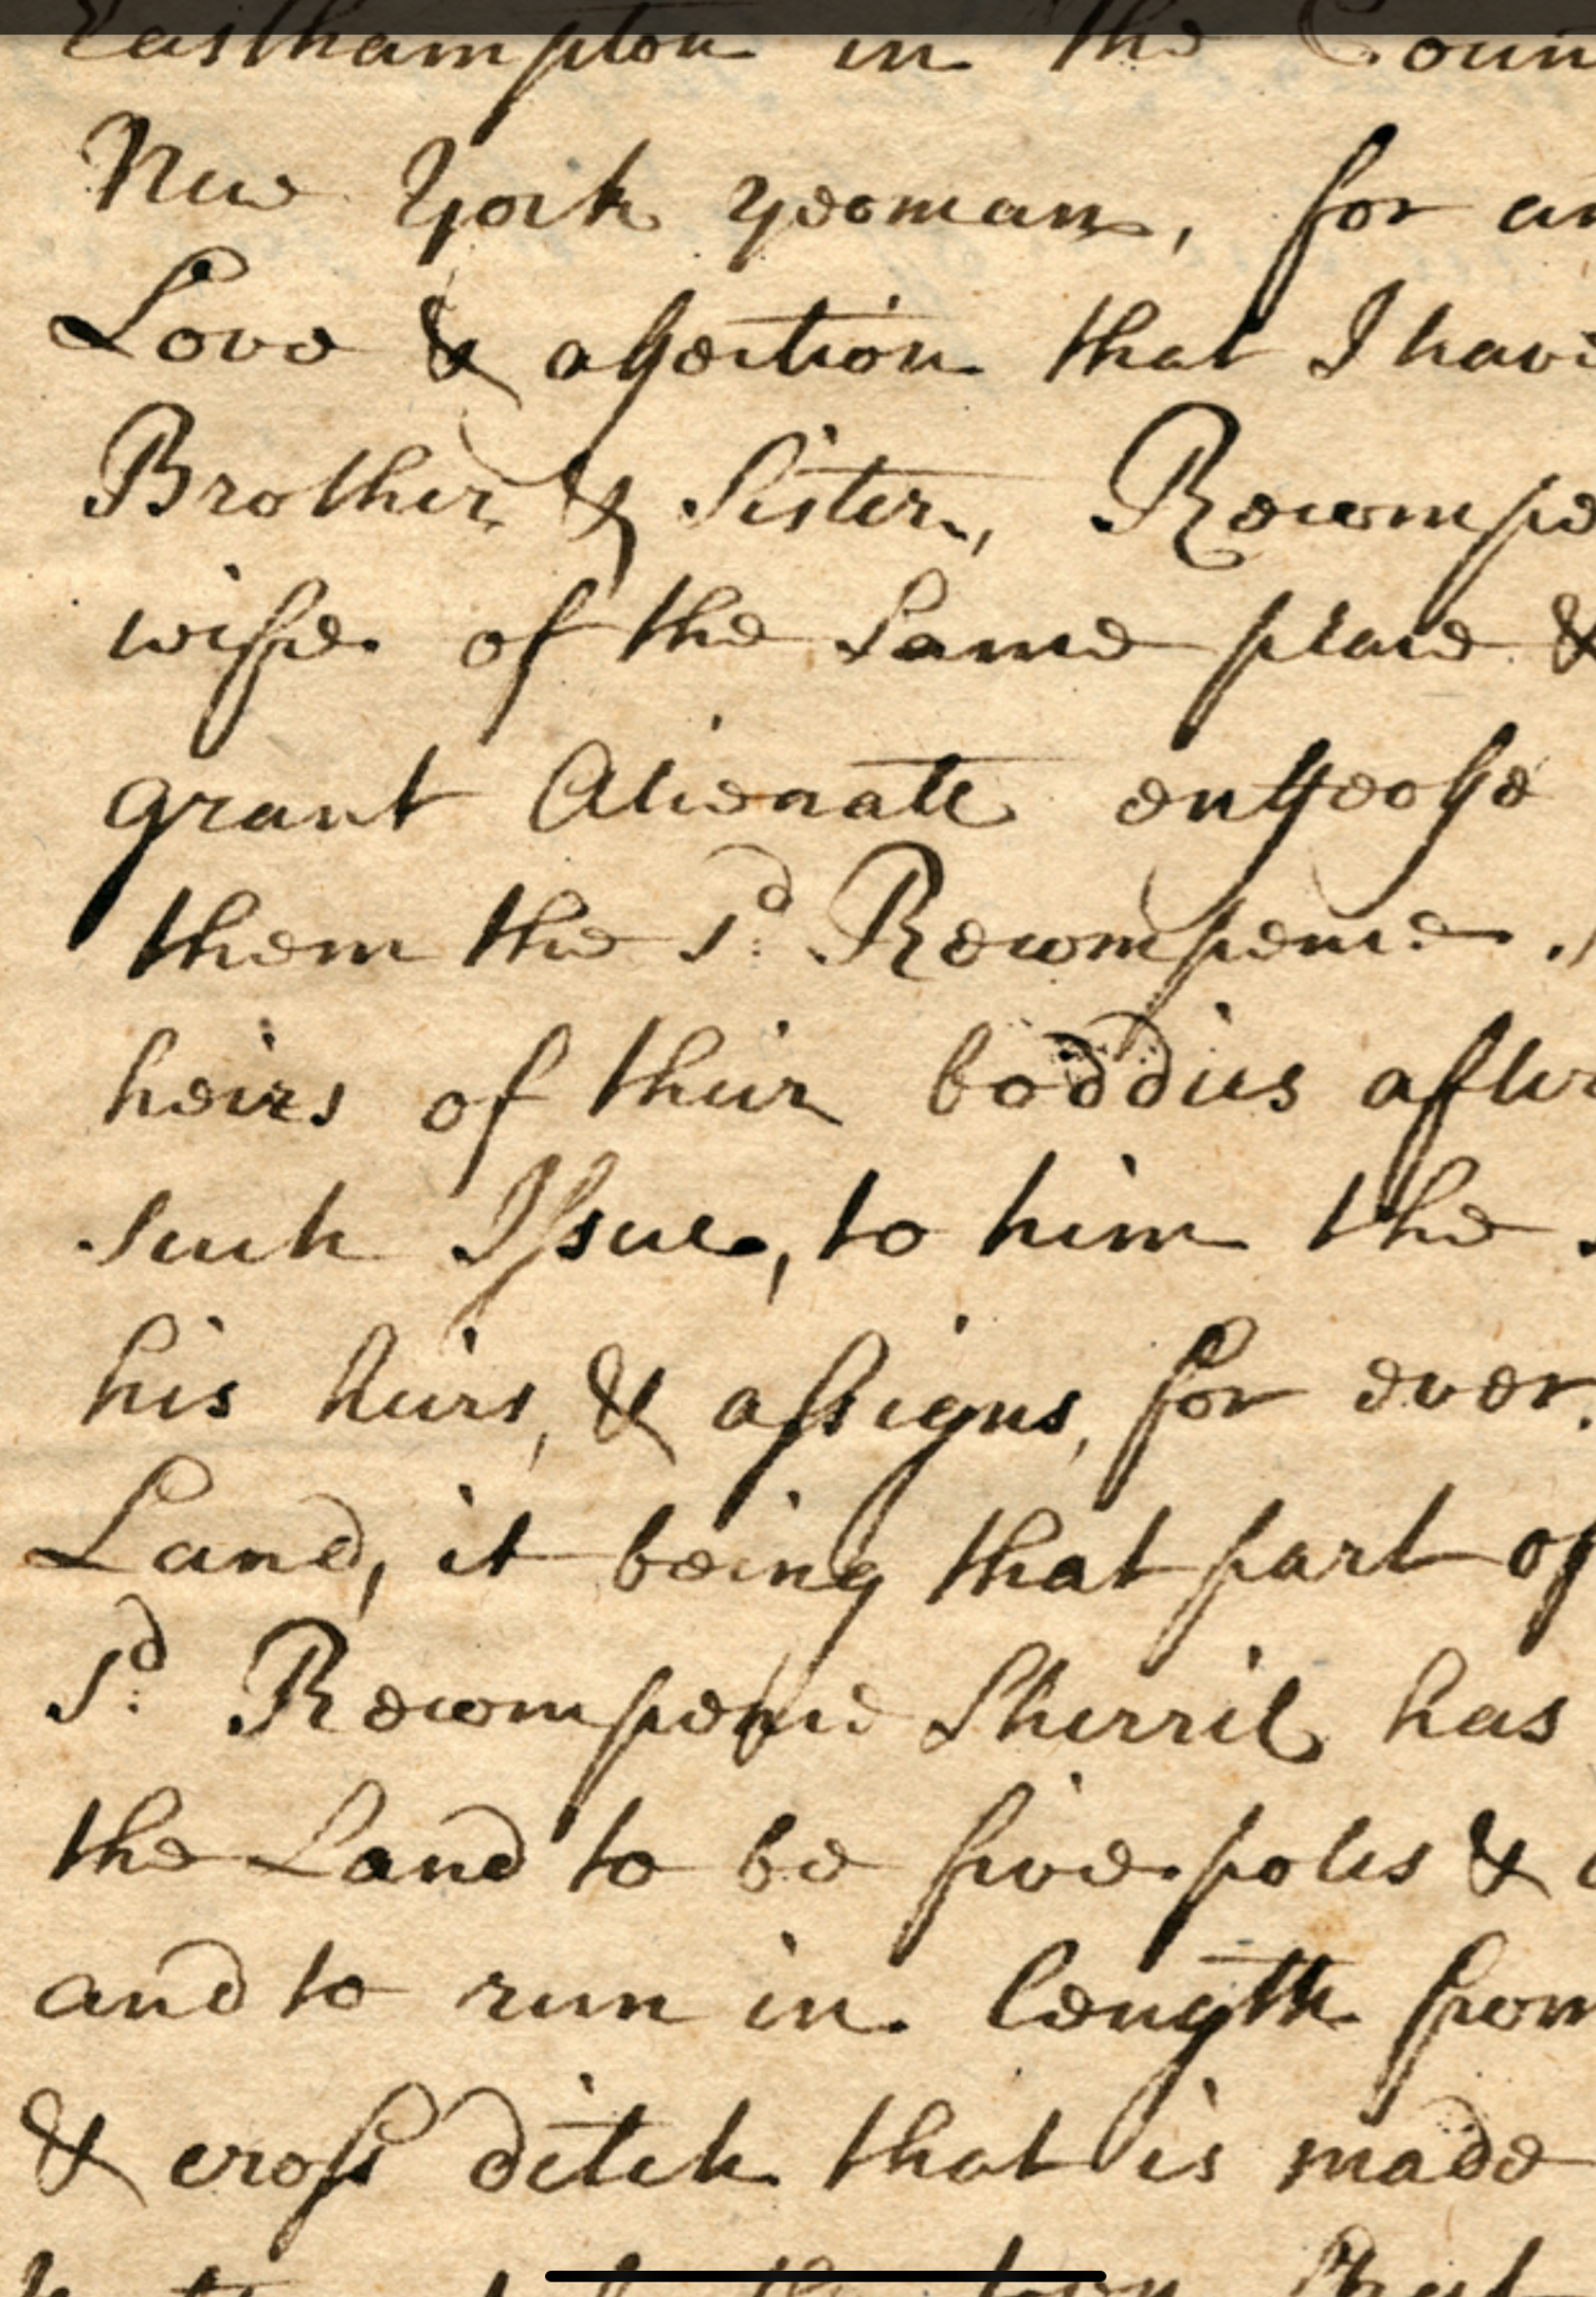 Easthampton in the Coun
New York yeoman, for an
Love & affection that I have
Brother & Sister, Recompe
wife of the Same place &
grant Alienate enffeoffe
them the sd. Recompence
heirs of their boddies after
such Issue, to him the
his heirs, & assigns, for ever.
Land, it being that part of
sd. Recompence Sherril has
the Land to be five poles &
and to run in length from
& cross ditch that is made